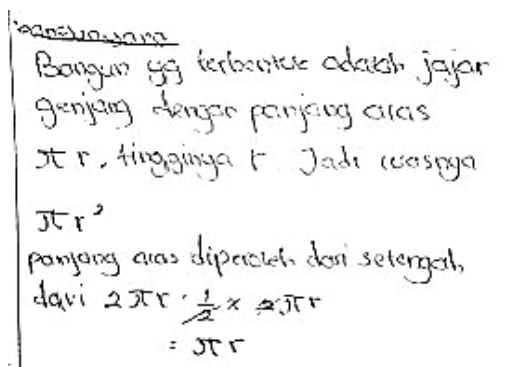 Bangun yg terbentuk adalah jajar
genjang dengan panjang alas
πr, tingginya r Jadi luasnya
πr²
panjang alas diperoleh dari setengah
dari 2πr · 1/2 × 2πr
= πr